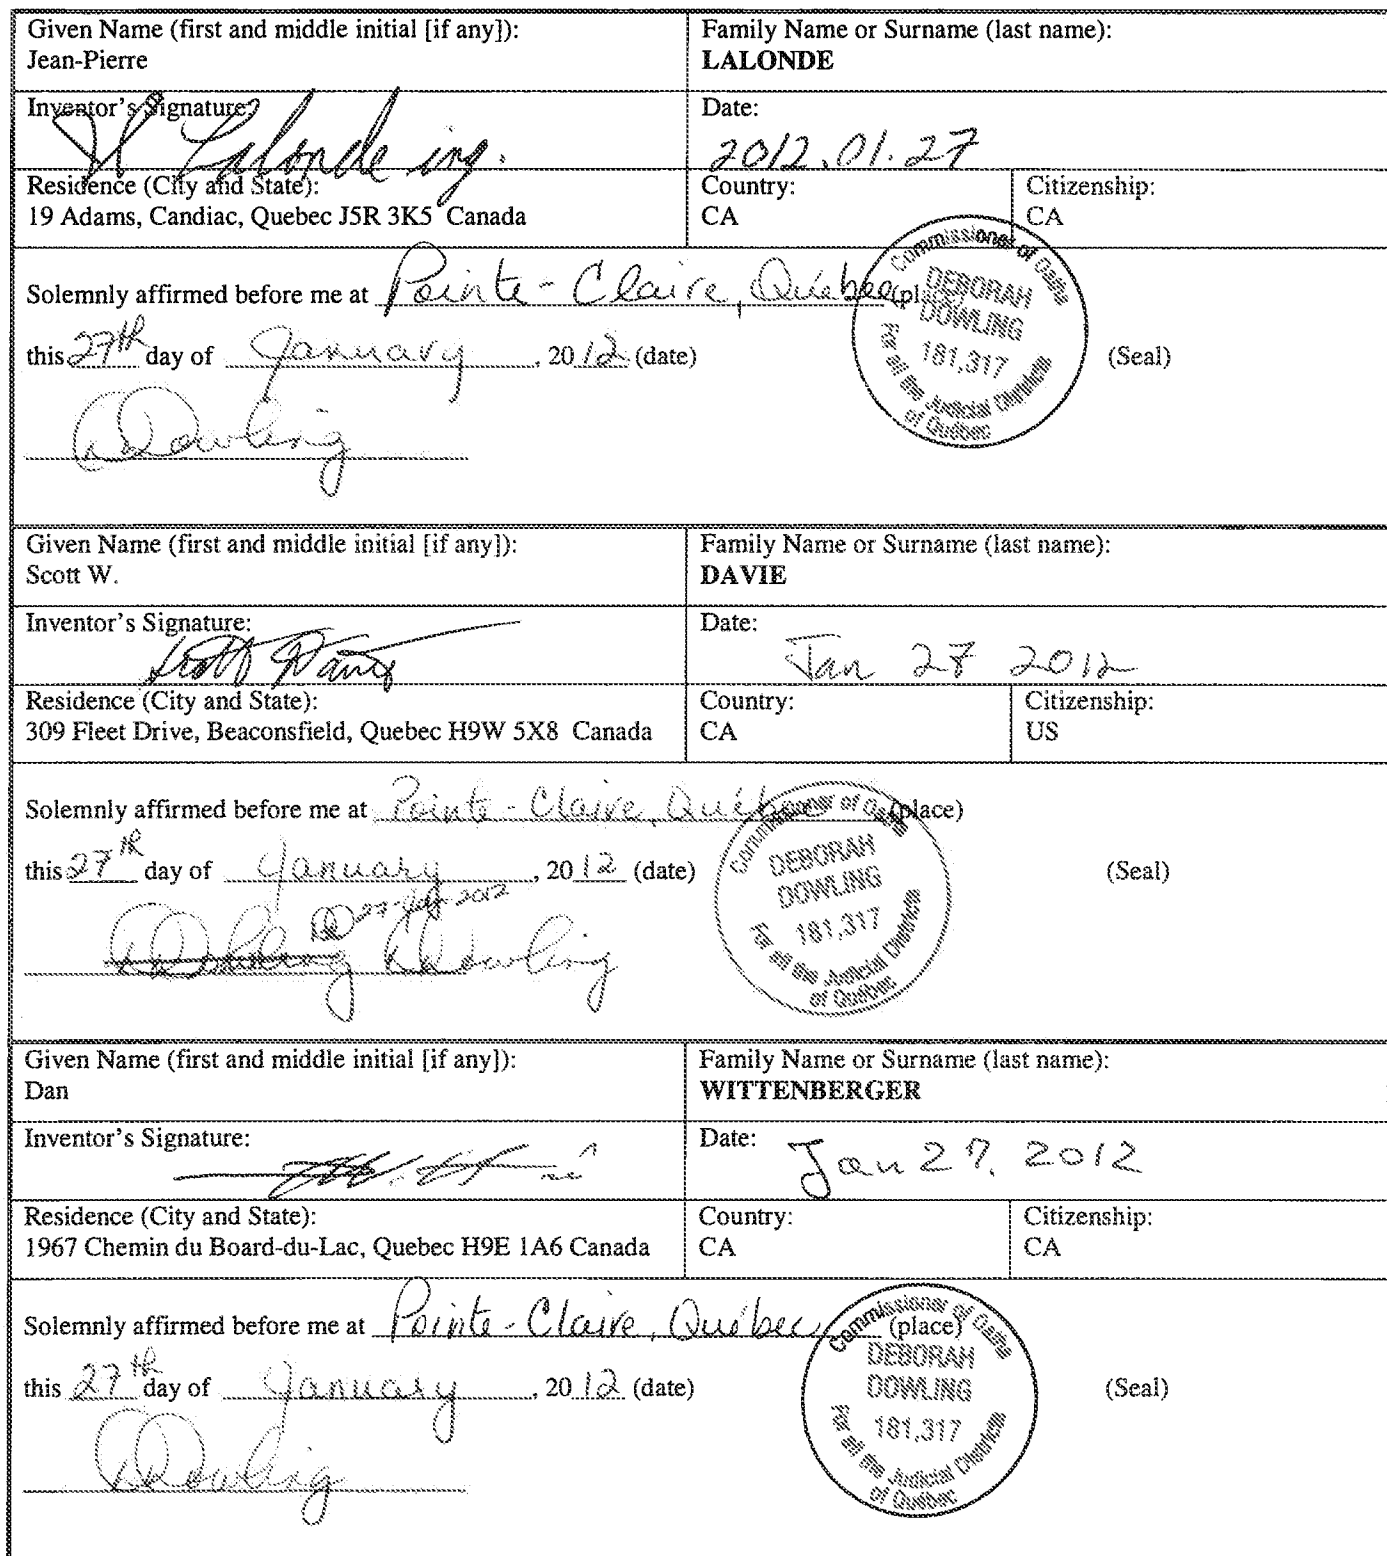 Given Name (first and middle initial [if any]):
Jean-Pierre
Family Name or Surname (last name):
LALONDE
Inventor's Signature:
Lalonde ing.
Date:
2012.01.27
Residence (City and State):
19 Adams, Candiac, Quebec J5R 3K5 Canada
Country:
CA
Citizenship:
CA
Solemnly affirmed before me at Pointe-Claire, Québec (place)
this 27th day of January, 2012 (date)
(Seal)
Commissioner of Oaths
DEBORAH
DOWLING
181,317
For all the Judicial Districts
of Québec
DDowling
Given Name (first and middle initial [if any]):
Scott W.
Family Name or Surname (last name):
DAVIE
Inventor's Signature:
Scott Davie
Date:
Jan 27 2012
Residence (City and State):
309 Fleet Drive, Beaconsfield, Quebec H9W 5X8 Canada
Country:
CA
Citizenship:
US
Solemnly affirmed before me at Pointe-Claire, Québec (place)
this 27th day of January, 2012 (date)
(Seal)
Commissioner of Oaths
DEBORAH
DOWLING
181,317
For all the Judicial Districts
of Québec
DD 27 2012
DDowling DDowling
Given Name (first and middle initial [if any]):
Dan
Family Name or Surname (last name):
WITTENBERGER
Inventor's Signature:
Date:
Jan 27, 2012
Residence (City and State):
1967 Chemin du Board-du-Lac, Quebec H9E 1A6 Canada
Country:
CA
Citizenship:
CA
Solemnly affirmed before me at Pointe-Claire, Québec (place)
this 27th day of January, 2012 (date)
(Seal)
Commissioner of Oaths
DEBORAH
DOWLING
181,317
For all the Judicial Districts
of Québec
DDowling